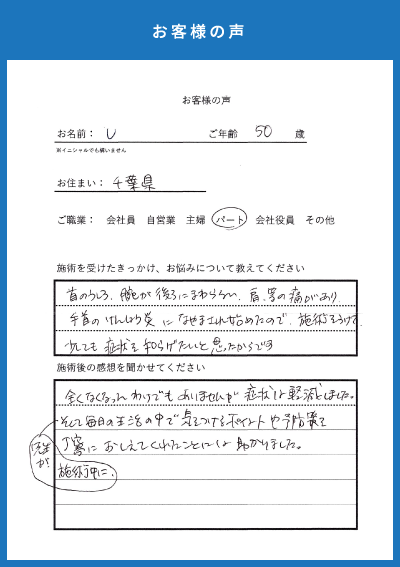 お客様の声
お客様の声
お名前： U ご年齢 50 歳
※イニシャルでも構いません
お住まい： 千葉県
ご職業： 会社員 自営業 主婦 パート 会社役員 その他
施術を受けたきっかけ、お悩みについて教えてください
首のうしろ、腕が後ろにまわらない、肩、背の痛みがあり、
手首のけんしょう炎になやまされ始めたので、施術をうけて
少しでも症状を和らげたいと思ったからです
施術後の感想を聞かせてください
全くなくなったわけでもありませんが症状は軽減しました。
そして毎日の生活の中で気をつけるポイントや予防策を
丁寧におしえてくれたことには助かりました。
先生が
施術中に、